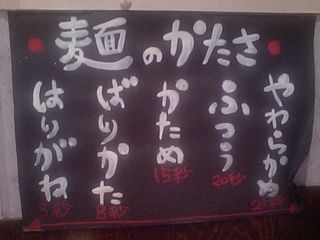 麺のかたさ
やわらかめ
25秒
ふつう
20秒
かため
15秒
ばりかた
8秒
はりがね
3秒